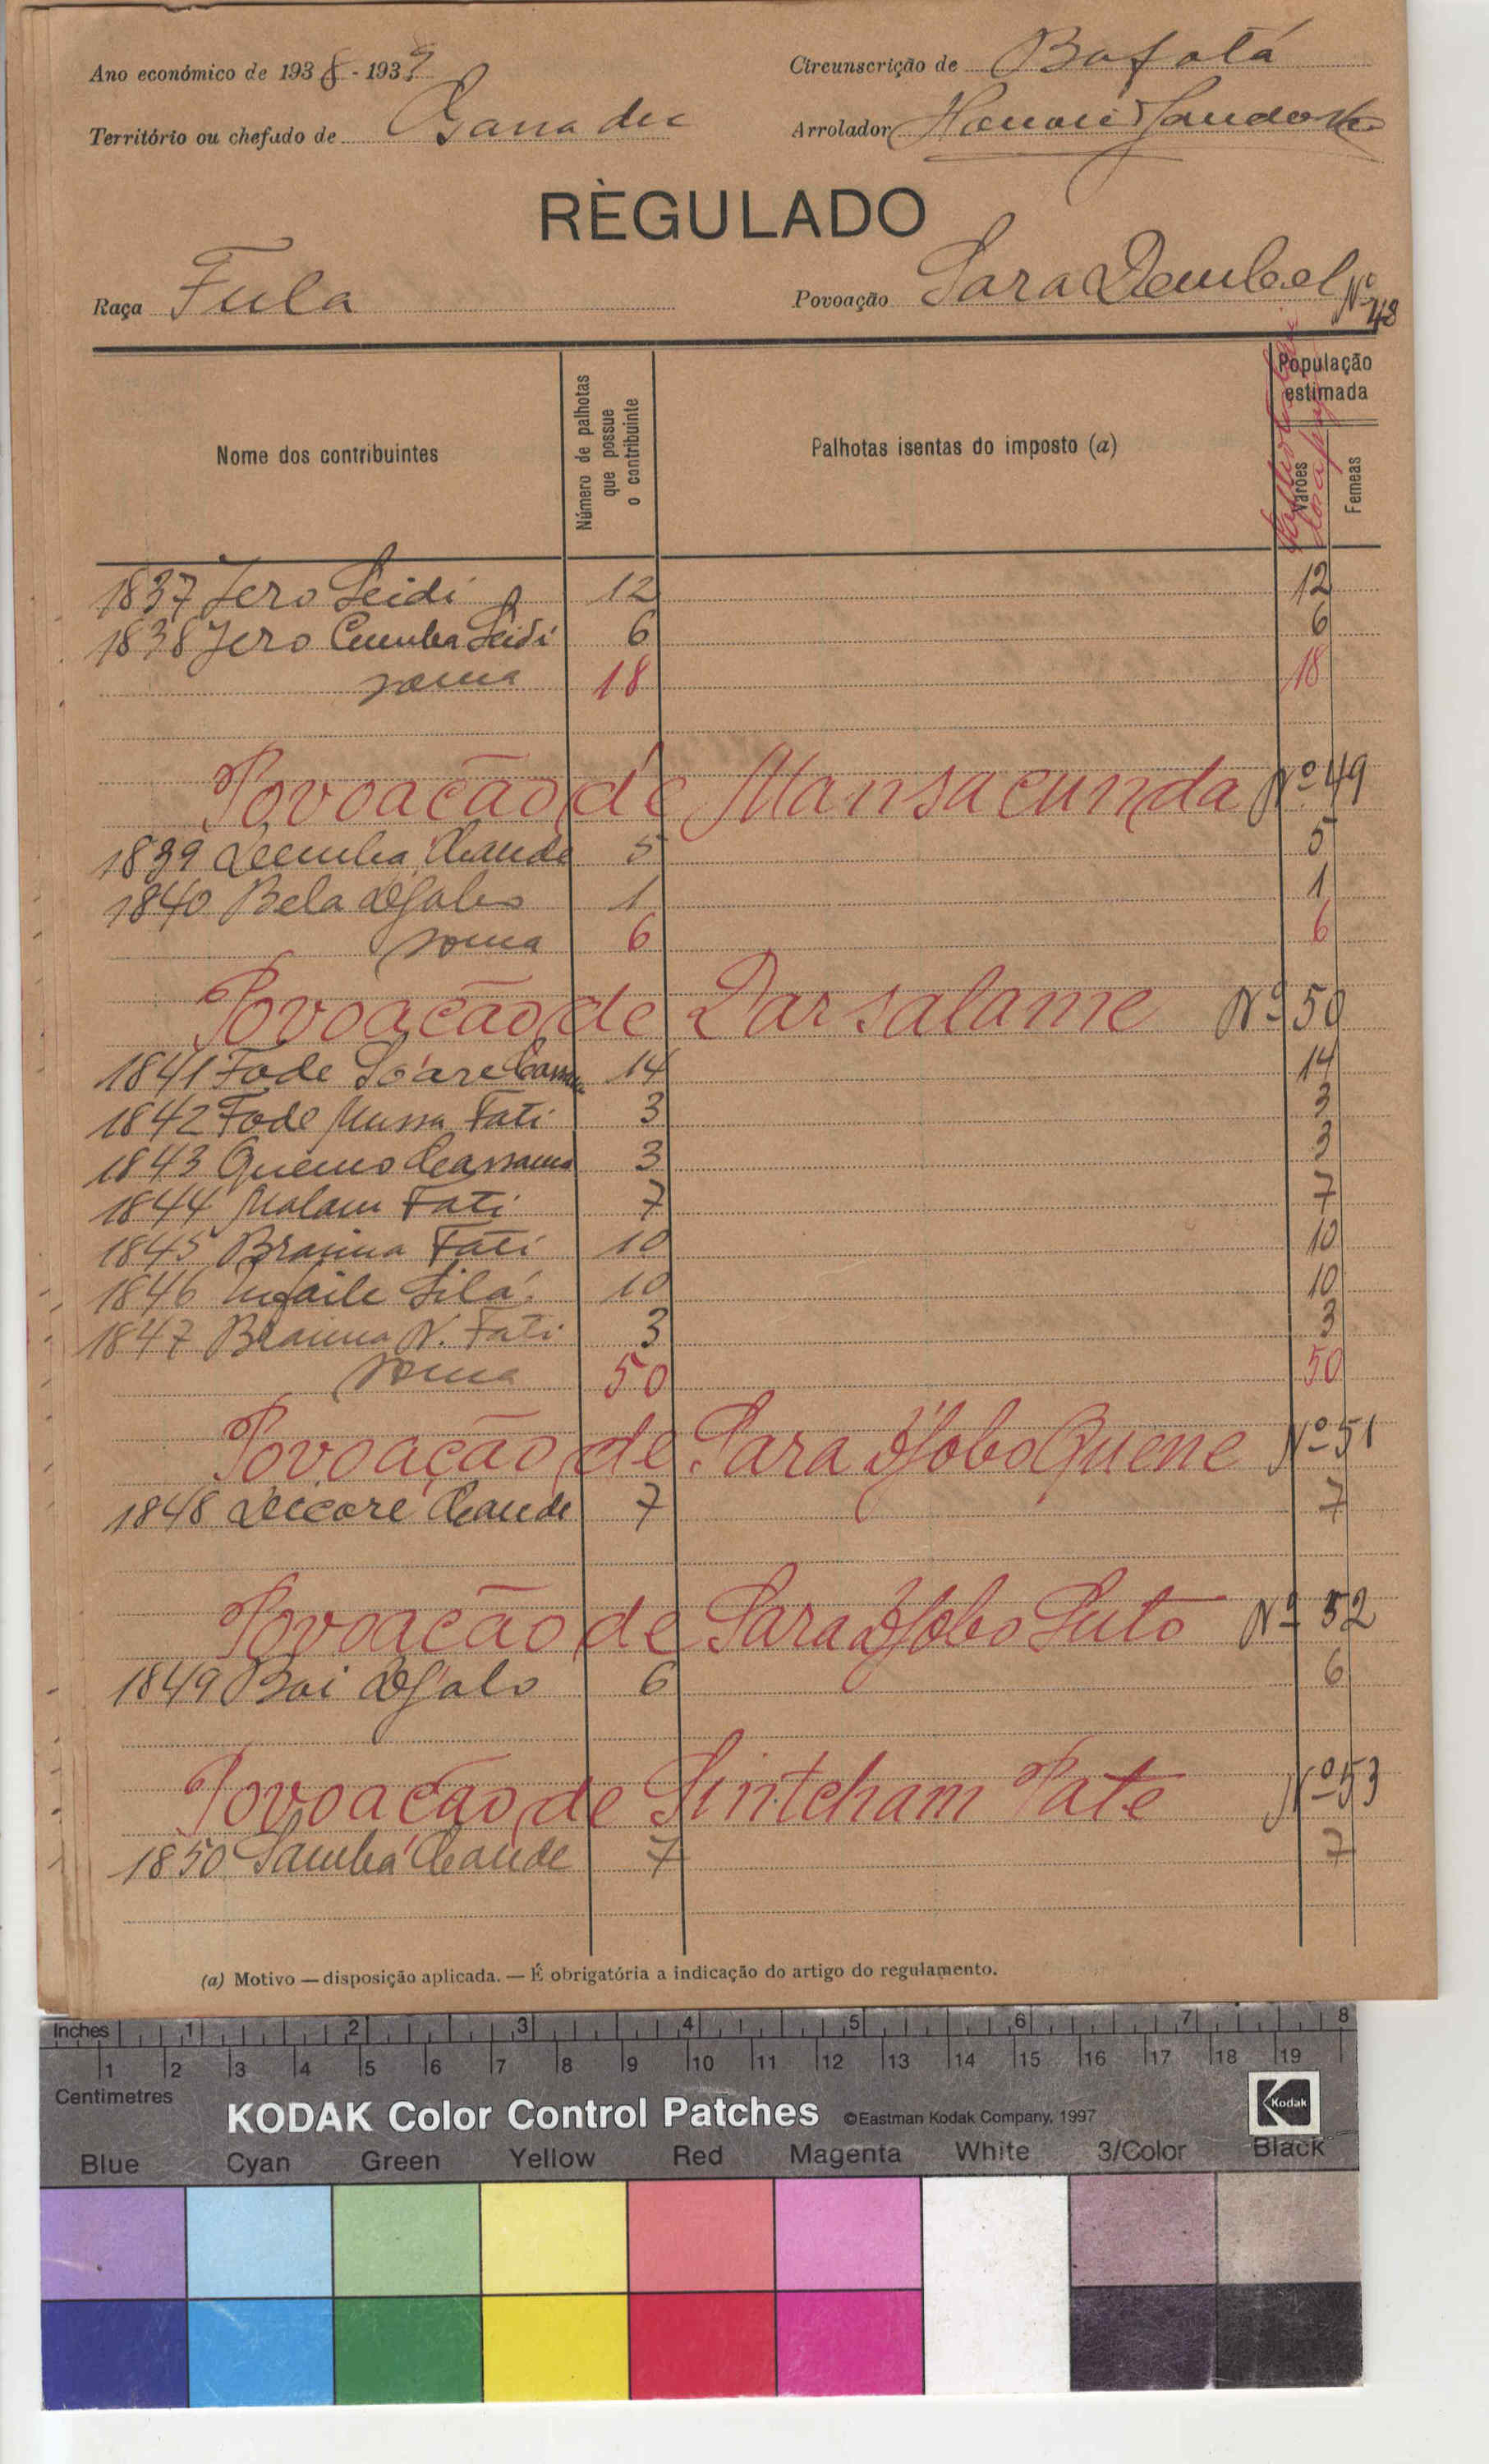 Ano económico de 1938-1939
Circunscrição de Bafatá
Território ou chefado de
Arrolador
RÈGULADO
Raça Fula
Povoação Sara Dembel Nº 48
Nome dos contribuintes
Número de palhotas que possue o contribuinte
Palhotas isentas do imposto (a)
População estimada
Varões
Femeas
1837 Jero Seidi 12 12
1838 Jero Cumba Seidi 6 6
soma 18 18
Povoação de Mansacunda Nº 49
1839 Demba Baude 5 5
1840 Bela Djalo 1 1
soma 6 6
Povoação de Darsalame Nº 50
1841 Fode Soare 14 14
1842 Fode Mussa Fati 3 3
1843 Quemo Cassama 3 3
1844 Malam Fati 7 7
1845 Braima Fati 10 10
1846 Infaile Silá 10 10
1847 Braima N. Fati 3 3
soma 50 50
Povoação de Sara Djobo Quene Nº 51
1848 Baude 7 7
Povoação de Sara Djobo Suto Nº 52
1849 Boi Djalo 6 6
Povoação de Sintcham Pate Nº 53
1850 Samba Baude 7 7
(a) Motivo — disposição aplicada. — É obrigatória a indicação do artigo do regulamento.
Inches 1 2 3 4 5 6 7 8
1 2 3 4 5 6 7 8 9 10 11 12 13 14 15 16 17 18 19
Centimetres
KODAK Color Control Patches ©Eastman Kodak Company, 1997 Kodak
Blue Cyan Green Yellow Red Magenta White 3/Color Black